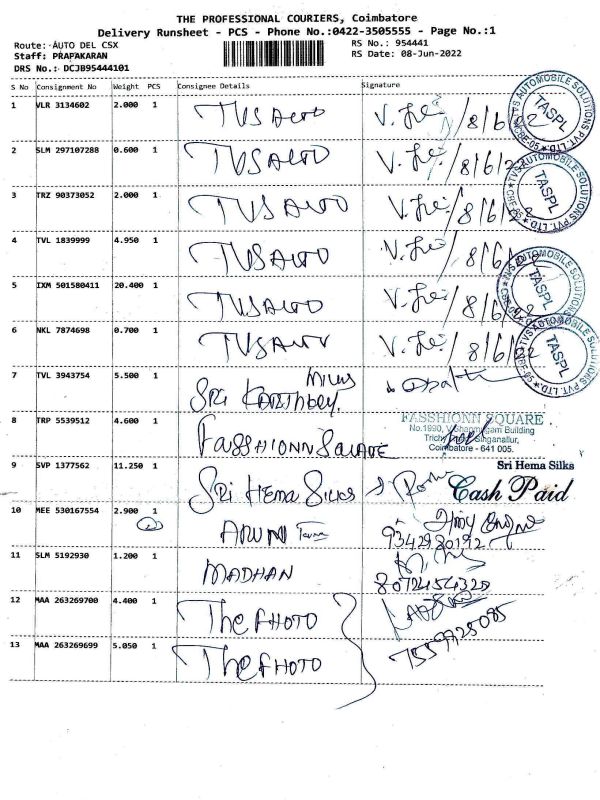 THE PROFESSIONAL COURIERS, Coimbatore
Delivery Runsheet - PCS - Phone No.:0422-3505555 - Page No.:1
Route: AUTO DEL CSX
RS No.: 954441
Staff: PRAPAKARAN
RS Date: 08-Jun-2022
DRS No.: DCJB95444101
S No Consignment No Weight PCS Consignee Details Signature
1 VLR 3134602 2.000 1 TVS AUTO 8/6/22
2 SLM 297107288 0.600 1 TVS AUTO 8/6/22
3 TRZ 90373052 2.000 1 TVS AUTO 8/6/22
4 TVL 1839999 4.950 1 TVS AUTO 8/6/22
5 IXM 501580411 20.400 1 TVS AUTO 8/6/22
6 NKL 7874698 0.700 1 TVS AUTO 8/6/22
TVS AUTOMOBILE SOLUTIONS PVT. LTD.
TASPL
TVS AUTOMOBILE SOLUTIONS PVT. LTD.
TASPL
TVS AUTOMOBILE SOLUTIONS PVT. LTD.
TASPL
TVS AUTOMOBILE SOLUTIONS PVT. LTD.
TASPL
7 TVL 3943754 5.500 1 SRI Mills
8 TRP 5539512 4.600 1 FASSHIONN SQUARE
FASSHIONN SQUARE
No.1990, V Shanmugam Building
Trichy Singanallur,
Coimbatore - 641 005.
9 SVP 1377562 11.250 1 SRI HEMA SILKS
Sri Hema Silks
Cash Paid
10 MEE 530167554 2.900 1 9342980192
11 SLM 5192930 1.200 1 MADHAN 8072454320
12 MAA 263269700 4.400 1 The PHOTO
13 MAA 263269699 5.050 1 The PHOTO 7559725085